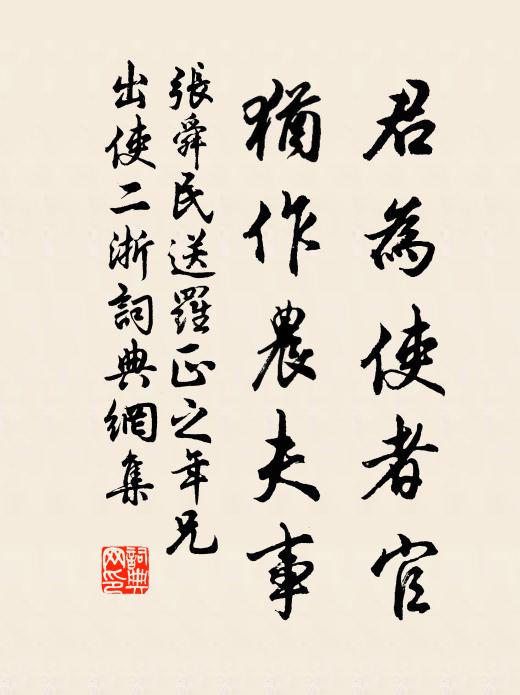 君為使者官
猶作農夫事
張舜民送羅正之年兄
出使二浙詞典網集
詞典網印